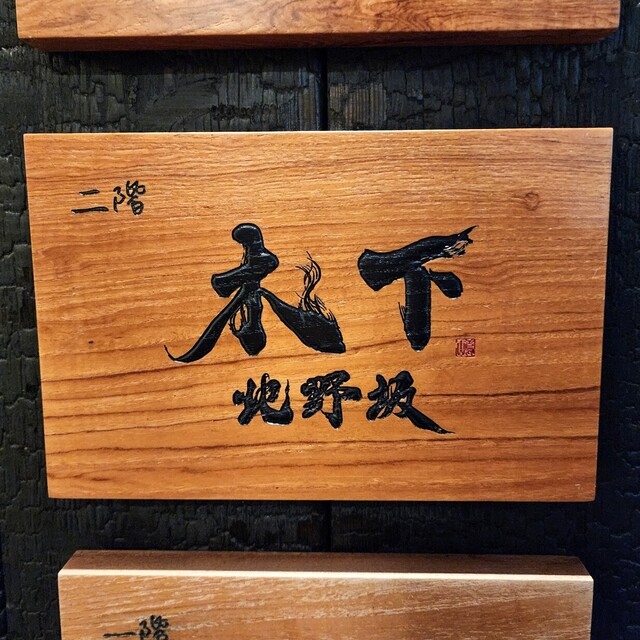 二階
木下
北野坂
一階